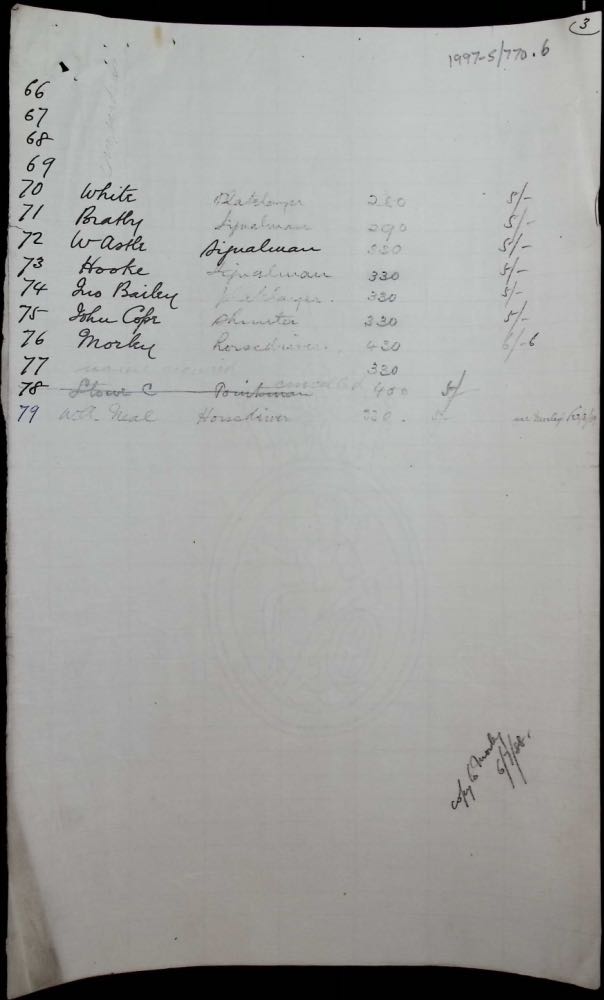 3
1997-5/770.6
66
67
68
69
70 White Platelayer 280 5/-
71 Bratby Signalman 290 5/-
72 Wastle Signalman 330 5/-
73 Hooke Signalman 330 5/-
74 Jno Bailey Platelayer. 330 5/-
75 John Cope Shunter 330 5/-
76 Morley horsedriver. 430 6/-6
77 330
78 Stone C Pointsman cancelled 400 5/
79 Neal Horsedriver 330. 5/-
copy to Morley
6/7/88.